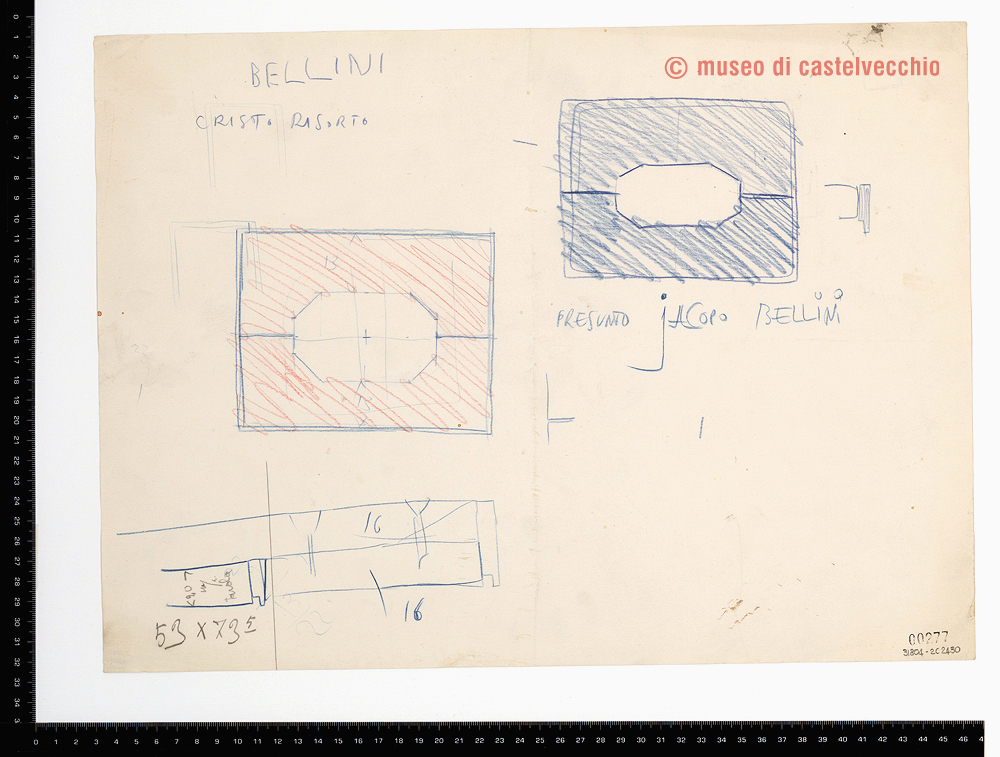 © museo di castelvecchio
BELLINI
CRISTO RISORTO
13
PRESUNTO JACOPO BELLINI
13
16
16
53 X 73 5
00277
31804-2C2430
0 1 2 3 4 5 6 7 8 9 10 11 12 13 14 15 16 17 18 19 20 21 22 23 24 25 26 27 28 29 30 31 32 33 34 35
0 1 2 3 4 5 6 7 8 9 10 11 12 13 14 15 16 17 18 19 20 21 22 23 24 25 26 27 28 29 30 31 32 33 34 35 36 37 38 39 40 41 42 43 44 45 46